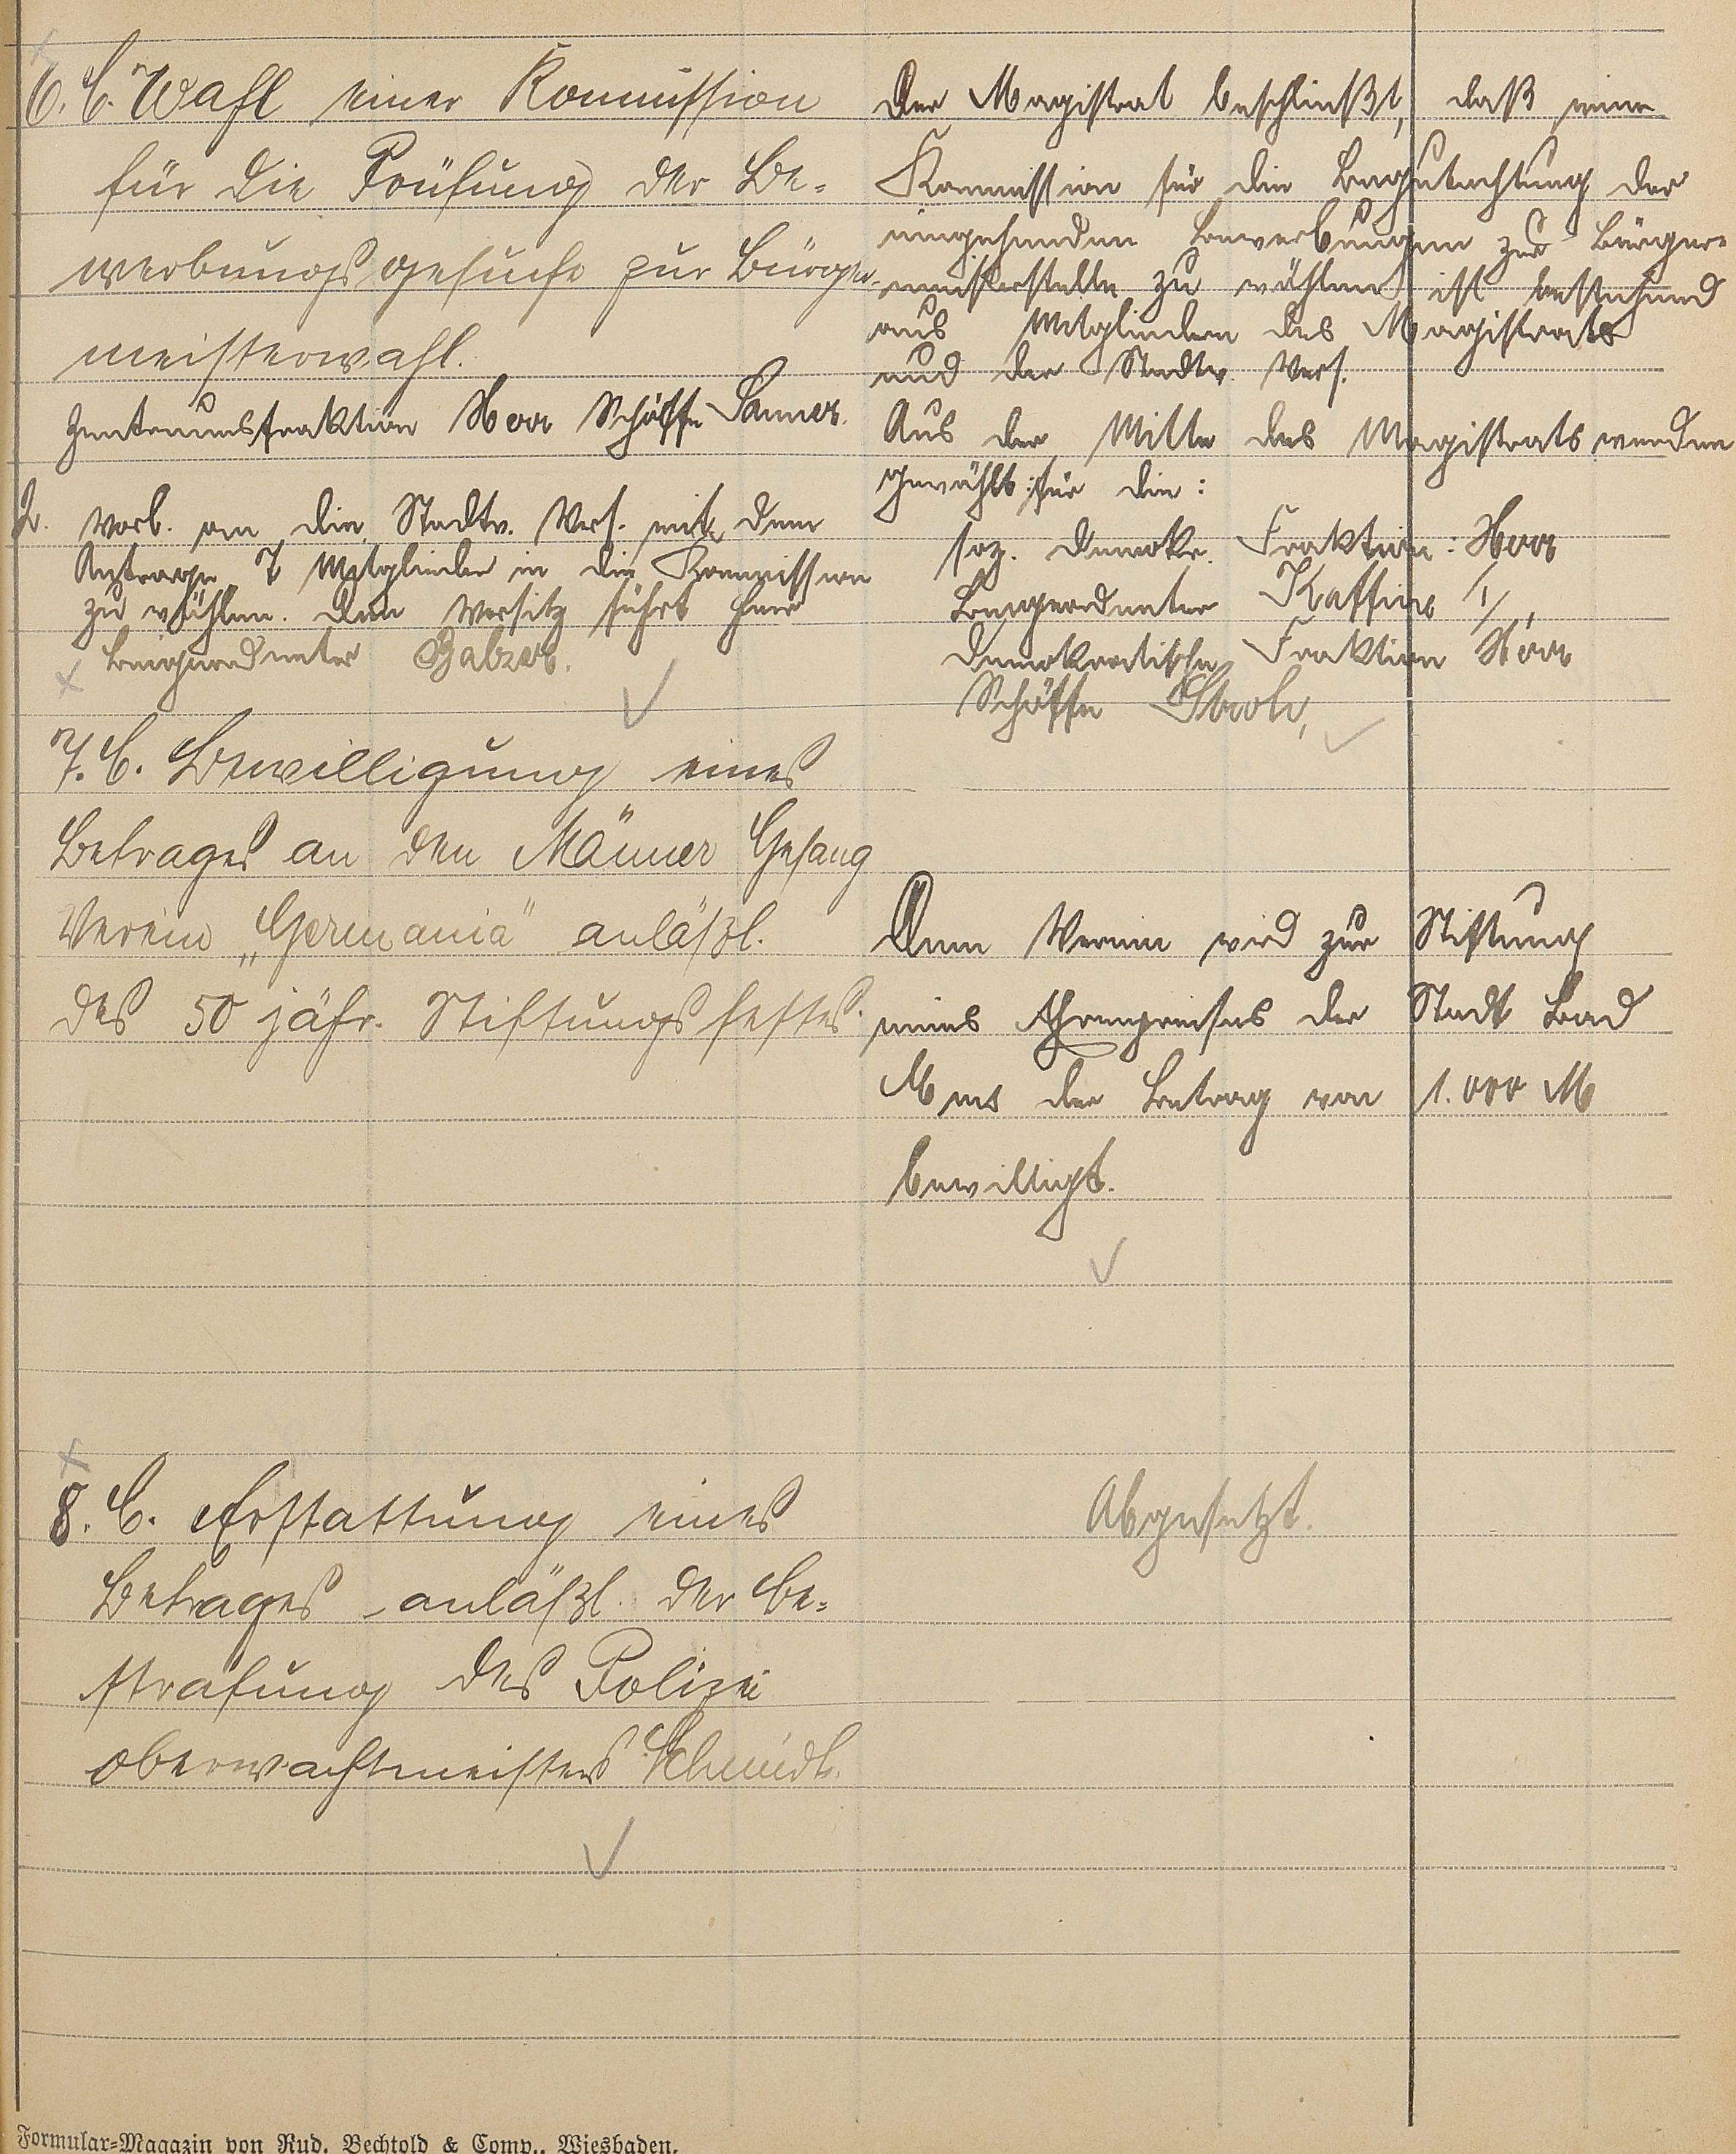 6. C. Wahl einer Kommission
für die Prüfung der Be-
werbungsgesuche zur Bürger-
meisterwahl.
Zentrumsfraktion Herr Schöffe Sanner.
2. Vorl. an die Stadtv. Vers. mit dem
Antrage 7 Mitglieder in die Kommission
zu wählen. Den Vorsitz führt Herr
Beigeordneter Balzer.
Der Magistrat beschließt, daß eine
Kommission für die Begutachtung der
eingehenden Bewerbungen zur Bürger-
meisterstelle zu wählen ist bestehend
aus Mitgliedern des Magistrats
und der Stadtv. Vers.
Aus der Mitte des Magistrats werden
gewählt: für die:
soz. demokr. Fraktion: Herr
Beigeordneter Kaffine
Demokratische Fraktion Herr
Schöffe Stroh,
7. C. Bewilligung eines
Betrages an den Männer Gesang
Verein „Germania" anläßl.
des 50 jähr. Stiftungsfestes.
Dem Verein wird zur Stiftung
eines Ehrenpreises der Stadt Bad
Ems der Betrag von 1.000 M
bewilligt.
8. C. Erstattung eines
Betrages anläßl. der Be-
strafung des Polizei
oberwachtmeisters Schmidt.
Abgesetzt.
Formular=Magazin von Rud. Bechtold & Comp., Wiesbaden.